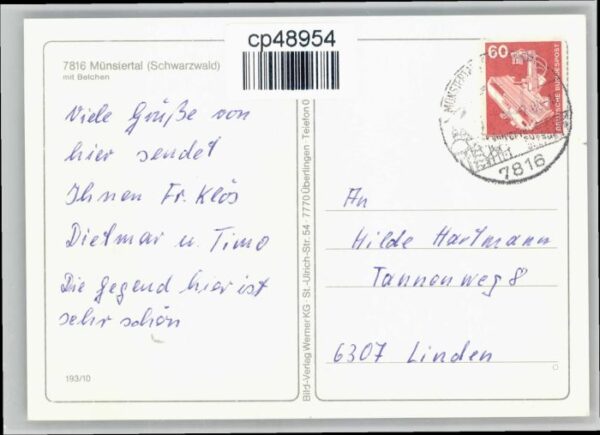 cp48954
7816 Münstertal (Schwarzwald)
mit Belchen
Viele Grüße von
hier sendet
Ihnen Fr. Klös
Dietmar u. Timo
Die Gegend hier ist
sehr schön
193/10
Bild-Verlag Werner KG · St.-Ulrich-Str. 54 · 7770 Überlingen · Telefon 0
60
DEUTSCHE BUNDESPOST
MÜNSTERTAL
7816
An
Hilde Hartmann
Tannenweg 8
6307 Linden